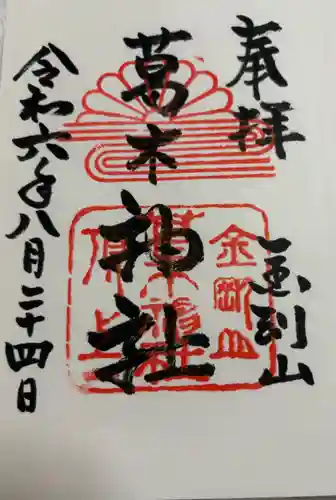 奉拝
金剛山
葛木神社
令和六年八月二十四日
金剛山
葛木神社